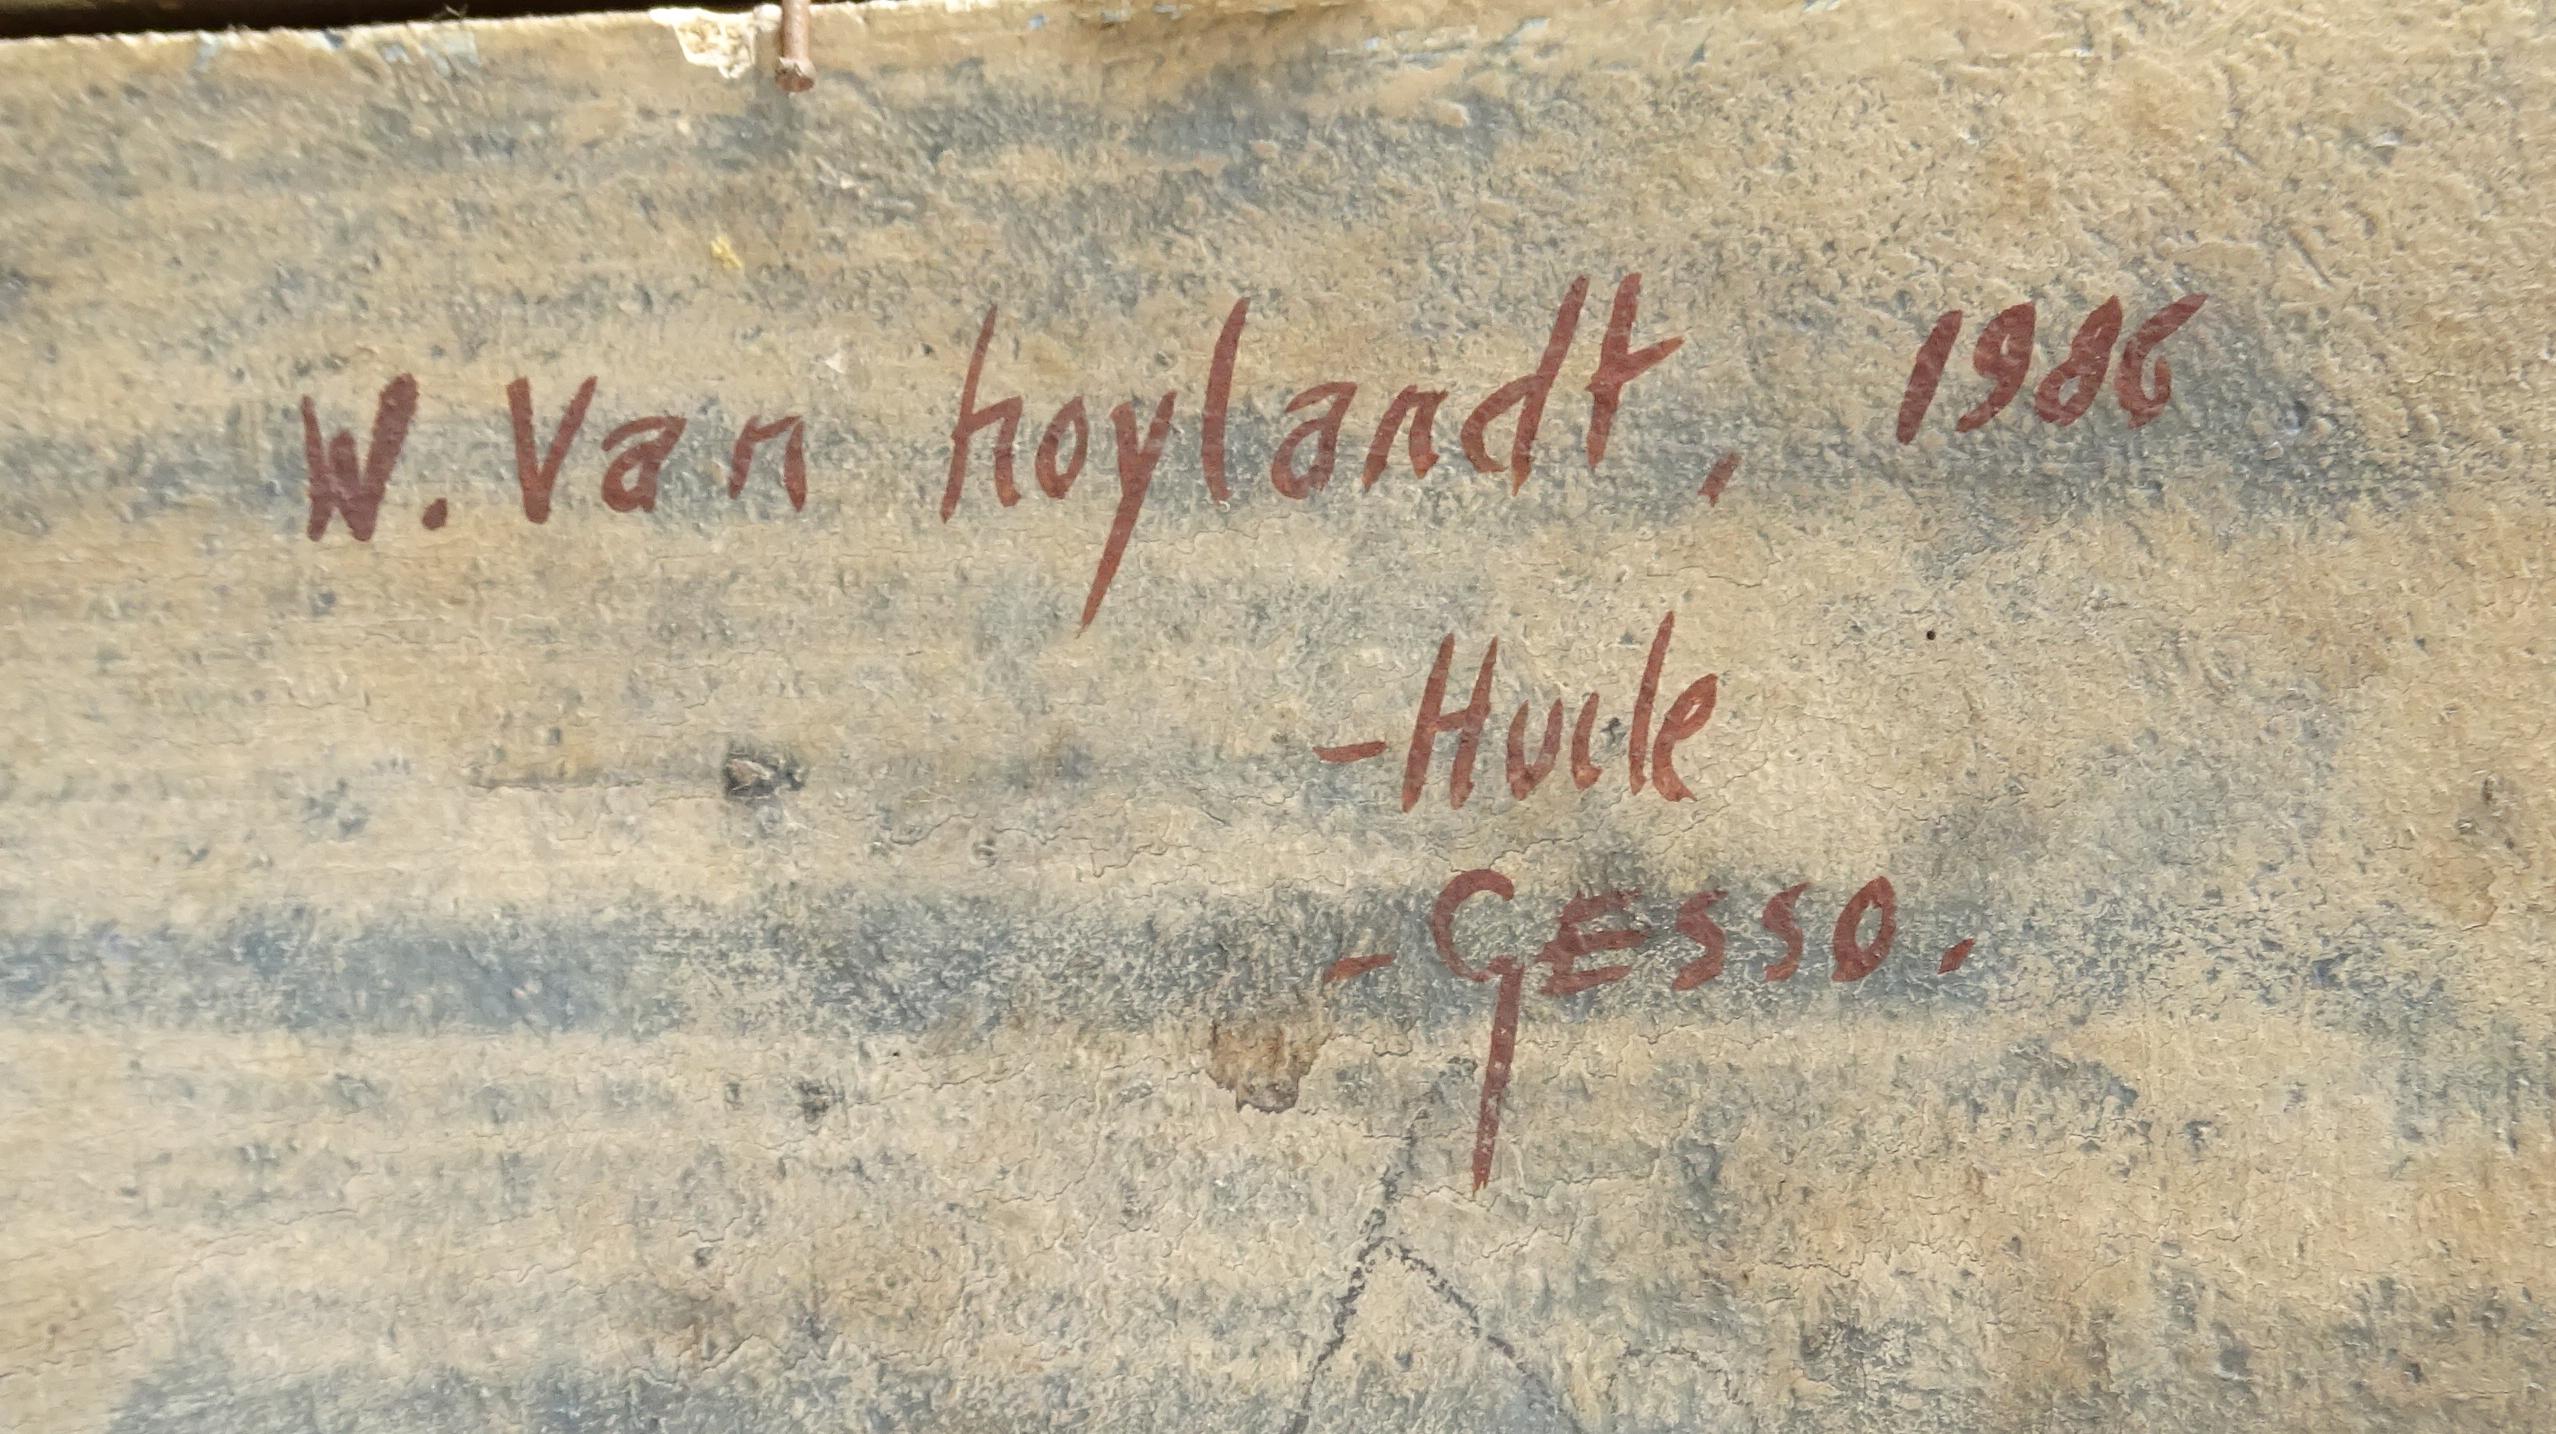 W. Van hoylandt, 1986
-Huile
-GESSO.